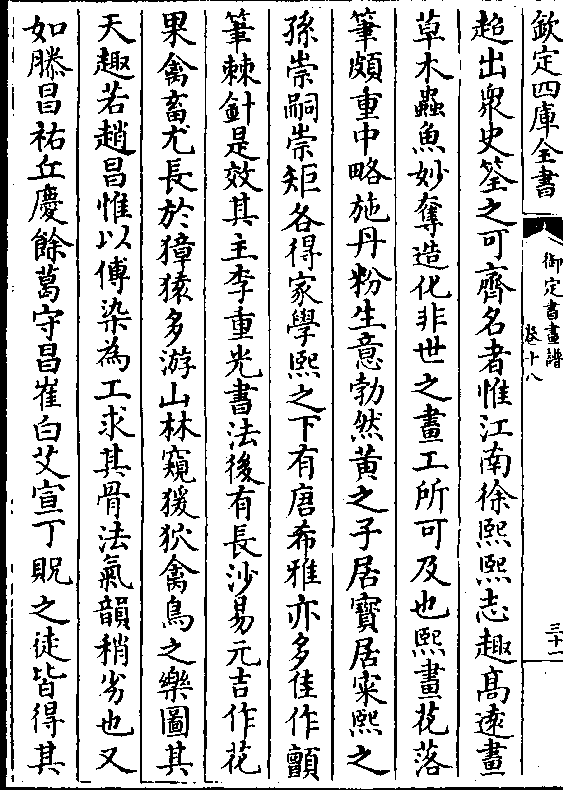 欽定四庫全書
御定書畫譜
卷十八
三十一
超出衆史筌之可齊名者惟江南徐熙熙志趣髙逺畫
草木蟲魚妙奪造化非世之畫工所可及也熙畫花落
筆頗重中略施丹粉生意勃然黄之子居寶居寀熙之
孫崇嗣崇矩各得家學熙之下有唐希雅亦多佳作顫
筆棘針是效其主李重光書法後有長沙易元吉作花
果禽畜尤長於獐猿多游山林窺猨狖禽鳥之樂圖其
天趣若趙昌惟以傅染為工求其骨法氣韻稍劣也又
如滕昌祐丘慶餘葛守昌崔白艾宣丁貺之徒皆得其